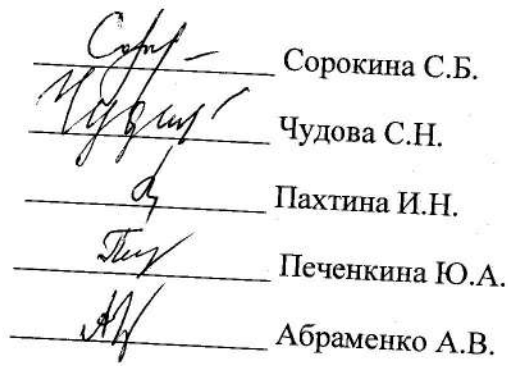 Сорокина С.Б.
Чудова С.Н.
Пахтина И.Н.
Печенкина Ю.А.
Абраменко А.В.